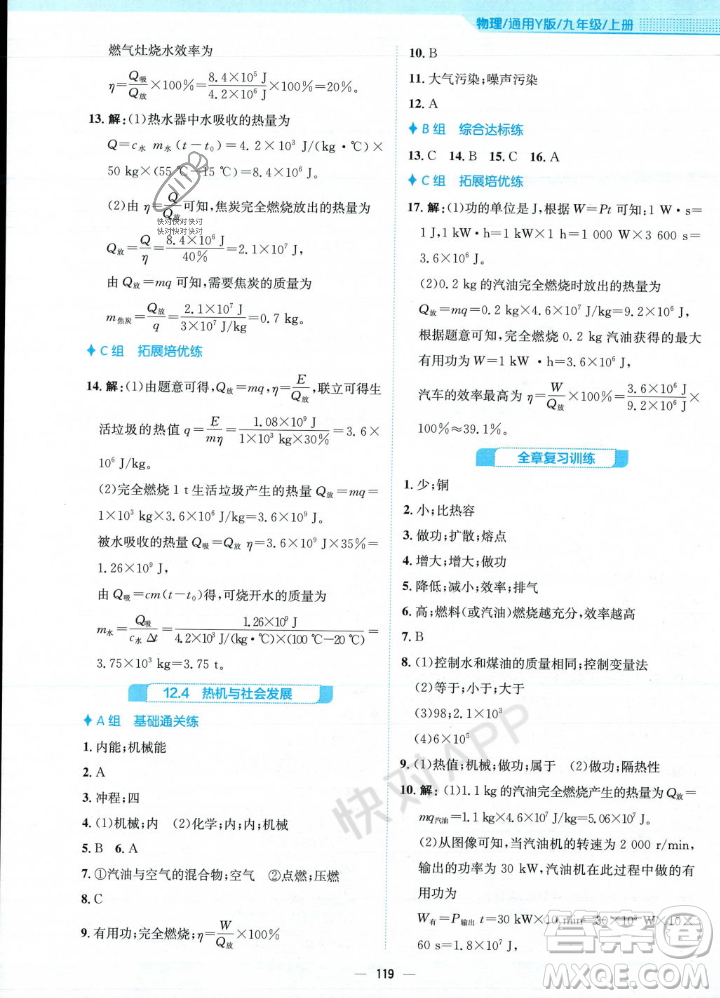 物理/通用Y版/九年级/上册
燃气灶烧水效率为
η=Q吸/Q放×100%=8.4×10⁵ J/4.2×10⁶ J×100%=20%。
13. 解:(1)热水器中水吸收的热量为
Q=c水 m水(t-t₀)=4.2×10³ J/(kg·℃)×
50 kg×(55 ℃-15 ℃)=8.4×10⁶ J。
(2)由 η=Q/Q放 可知,焦炭完全燃烧放出的热量为
快对快对快对
快对快对快对
Q放=Q/η=8.4×10⁶ J/40%=2.1×10⁷ J,
由 Q放=mq 可知,需要焦炭的质量为
m焦炭=Q放/q=2.1×10⁷ J/3×10⁷ J/kg=0.7 kg。
C 组 拓展培优练
14. 解:(1)由题意可得,Q放=mq,η=E/Q放,联立可得生
活垃圾的热值 q=E/mη=1.08×10⁹ J/1×10³ kg×30%=3.6×
10⁶ J/kg。
(2)完全燃烧 1 t 生活垃圾产生的热量 Q放=mq=
1×10³ kg×3.6×10⁶ J/kg=3.6×10⁹ J,
被水吸收的热量 Q吸=Q放η=3.6×10⁹ J×35%=
1.26×10⁹ J,
由 Q吸=cm(t-t₀)得,可烧开水的质量为
m水=Q吸/c水 Δt=1.26×10⁹ J/4.2×10³ J/(kg·℃)×(100 ℃-20 ℃)=
3.75×10³ kg=3.75 t。
12.4 热机与社会发展
A 组 基础通关练
1. 内能;机械能
2. A
3. 冲程;四
4. (1)机械;内 (2)化学;内;内;机械
5. B 6. A
7. ①汽油与空气的混合物;空气 ②点燃;压燃
8. C
9. 有用功;完全燃烧;η=W/Q放×100%
10. B
11. 大气污染;噪声污染
12. A
B 组 综合达标练
13. C 14. B 15. C 16. A
C 组 拓展培优练
17. 解:(1)功的单位是 J,根据 W=Pt 可知;1 W·s=
1 J,1 kW·h=1 000 W×1 h=1 000 W×3 600 s=
3.6×10⁶ J。
(2)0.2 kg 的汽油完全燃烧时放出的热量为
Q放=mq=0.2 kg×4.6×10⁷ J/kg=9.2×10⁶ J,
根据题意可知,完全燃烧 0.2 kg 汽油获得的最大
有用功 W=1 kW·h=3.6×10⁶ J,
汽车的效率最高为 η=W/Q放×100%=3.6×10⁶ J/9.2×10⁶ J×
100%≈39.1%。
全章复习训练
1. 少;铜
2. 小;比热容
3. 做功;扩散;熔点
4. 增大;增大;做功
5. 降低;减小;效率;排气
6. 高;燃料(或汽油)燃烧越充分,效率越高
7. B
8. (1)控制水和煤油的质量相同;控制变量法
(2)大于
(3)98;2.1×10³
(4)6×10⁵
9. (1)热值;机械;做功;属于 (2)做功;隔热性
10. 解:(1)1.1 kg 的汽油完全燃烧产生的热量 Q放=
m汽油q=1.1 kg×4.6×10⁷ J/kg=5.06×10⁷ J。
(2)从图像可知,当汽油机的转速为 2 000 r/min,
输出的功率为 30 kW,汽油机在 1 min 内所做的有
用功为
W有=P输出 t=30 kW×1 min=30×10³ W×
60 s=1.8×10⁶ J,
快对APP
作业精灵
MXQE.COM
119